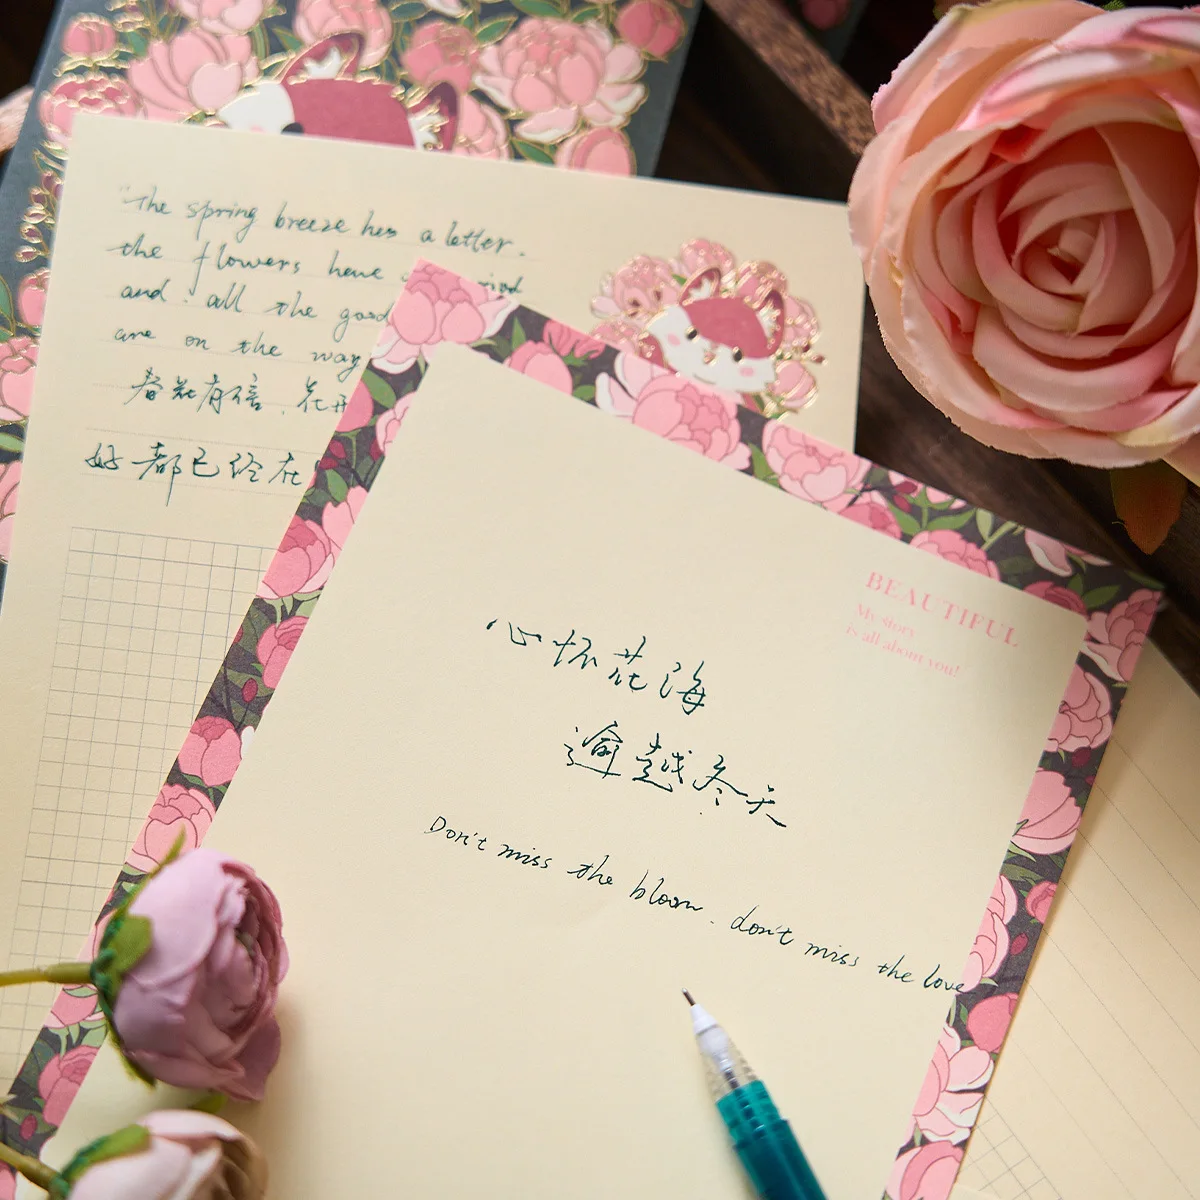 "The spring breeze has a letter.
the flowers have
and all the good
are on the way
春花有信、花开
好都已经在
BEAUTIFUL
My story
is all about you!
心怀花海
逾越冬天
Don't miss the bloom. don't miss the love